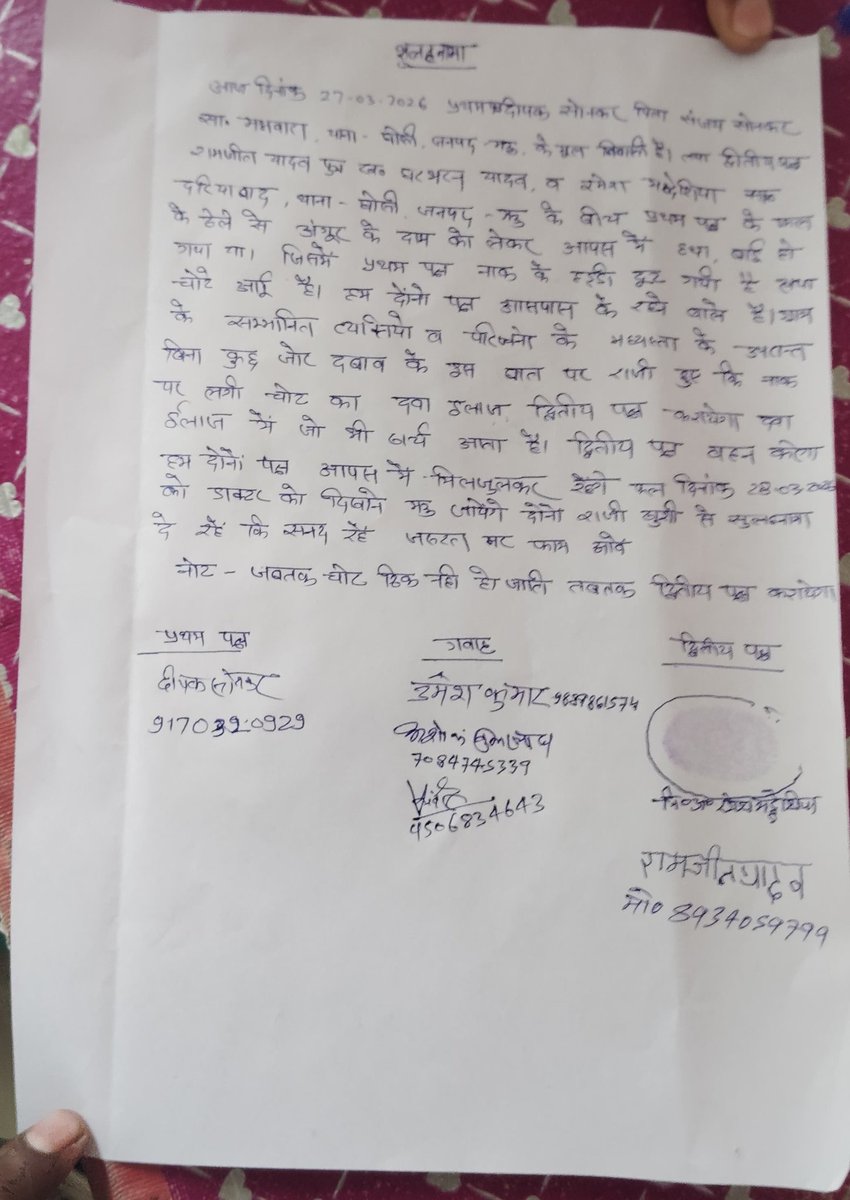 सुलहनामा
आज दिनांक 27-03-2026 प्रथमपक्ष दीपक सोनकर पिता संजय सोनकर
सा० थाना - घोसी, जनपद - मऊ, के मूल निवासी है। तथा द्वितीय पक्ष
रामजीत यादव पुत्र स्व० यादव, व रमेश मद्धेशिया
दरियाबाद, थाना - घोसी, जनपद - मऊ के बीच प्रथम पक्ष के
के ठेले से अंगूर के दाम को लेकर आपस में हो
गया था। जिसमें प्रथम पक्ष नाक के हड्डी टूट गयी है तथा
चोटे आई है। हम दोनो पक्ष आसपास के रहने वाले है। ग्राम
के सम्भ्रानित व्यक्तियो व परिजनो के मध्यस्ता के उपरान्त
बिना कुछ जोर दबाव के इस बात पर राजी हुए कि नाक
पर लगी चोट का दवा ईलाज द्वितीय पक्ष करायेगा दवा
ईलाज में जो भी खर्च आता है। द्वितीय पक्ष वहन करेगा
हम दोनों पक्ष आपस में मिलजुलकर रहेगें कल दिनांक 28-03-2026
को डाक्टर को दिखाने मऊ जायेंगे दोनो राजी खुशी से सुलहनामा
दे रहें कि समद रहें जरुरत पर काम आवे
नोट - जबतक चोट ठिक नही हो जाति तबतक द्वितीय पक्ष करायेगा
प्रथम पक्ष
गवाह
द्वितीय पक्ष
दीपक सोनकर
9170390929
उमेश कुमार 9889861574
7084745339
9506834643
नि०अ० रमेश मद्धेशिया
रामजीत यादव
मो० 8934059799